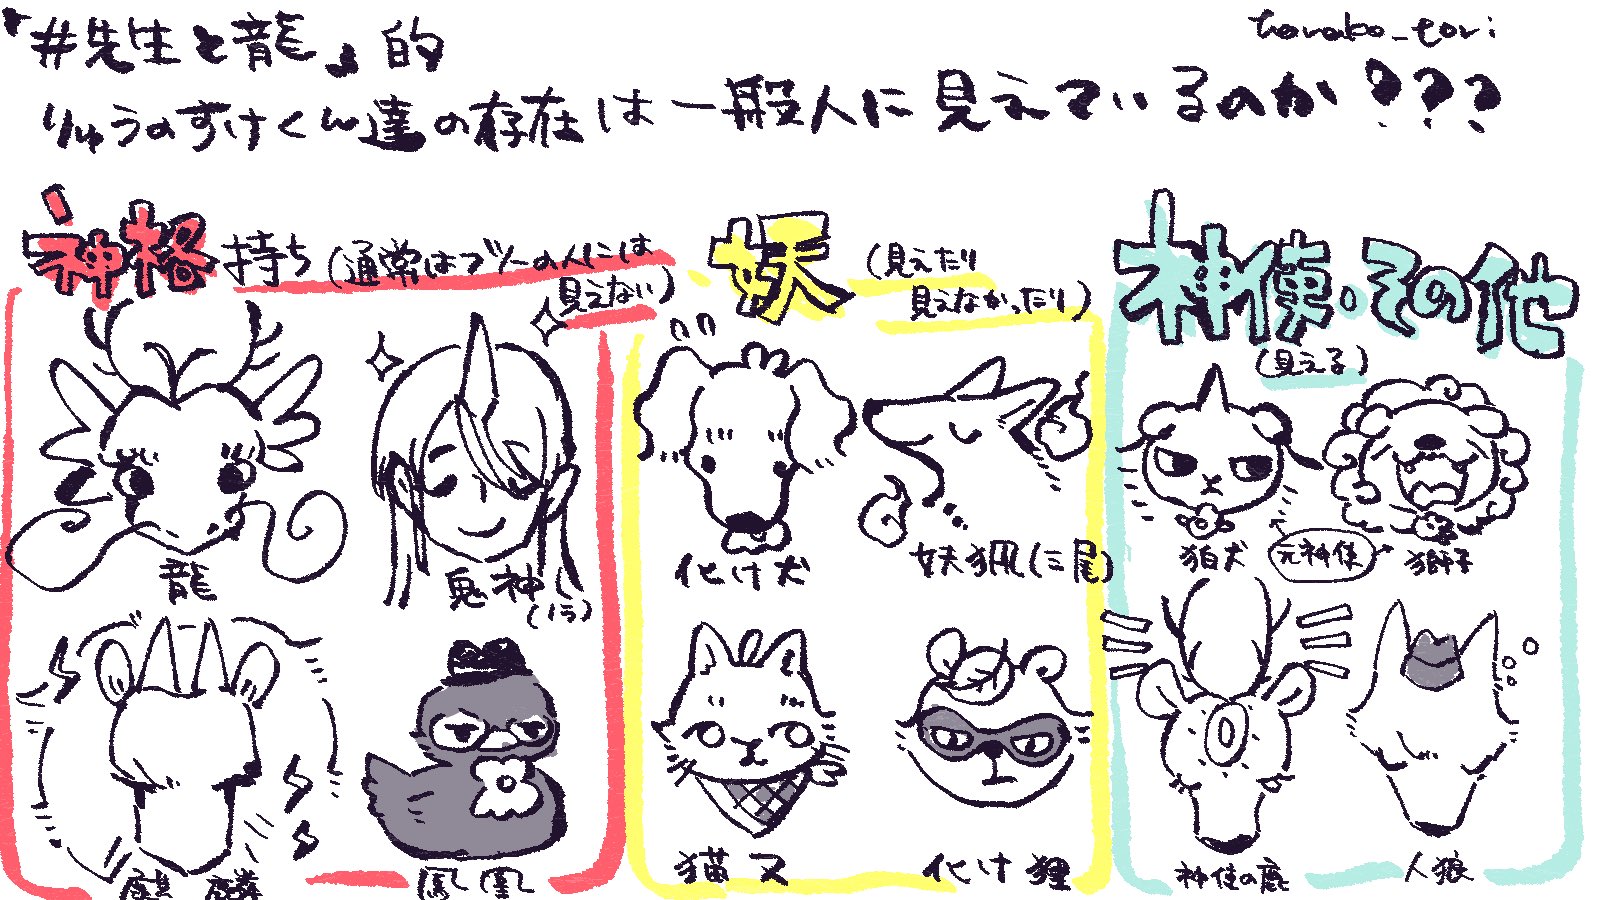 『#先生と龍』的
harako_tori
りゅうのすけくん達の存在は一般人に見えているのか???
神格持ち(通常はフツーの人には
見えない)
妖(見えたり
見えなかったり)
神使・その他
(見える)
龍
鬼神
麒麟
鳳凰
化け犬
妖狐(三尾)
猫又
化け狸
狛犬
元神使
獅子
神使の鹿
人狼